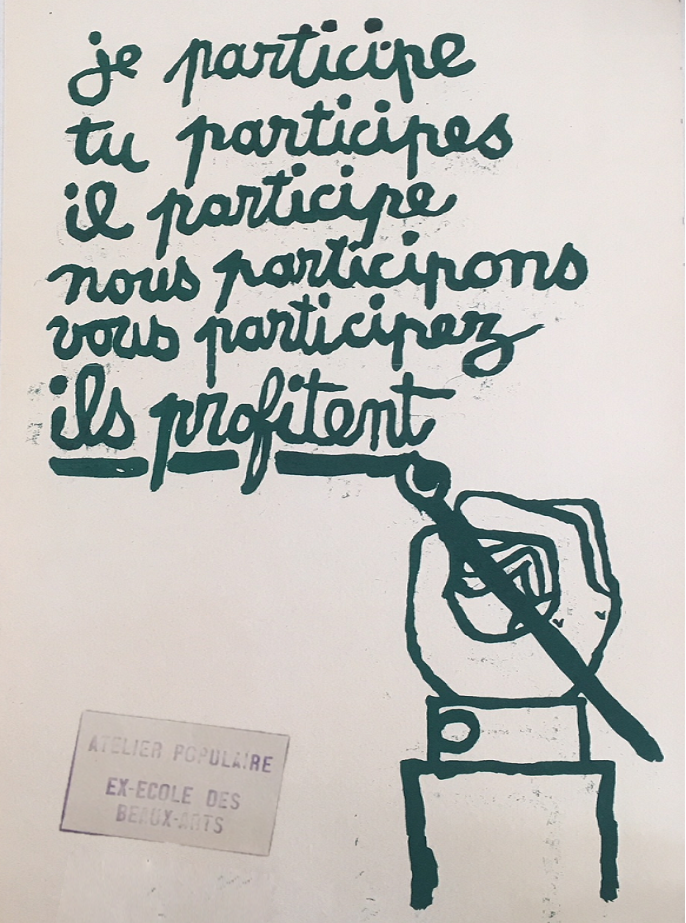 je participe
tu participes
il participe
nous participons
vous participez
ils profitent
ATELIER POPULAIRE
EX-ECOLE DES
BEAUX-ARTS